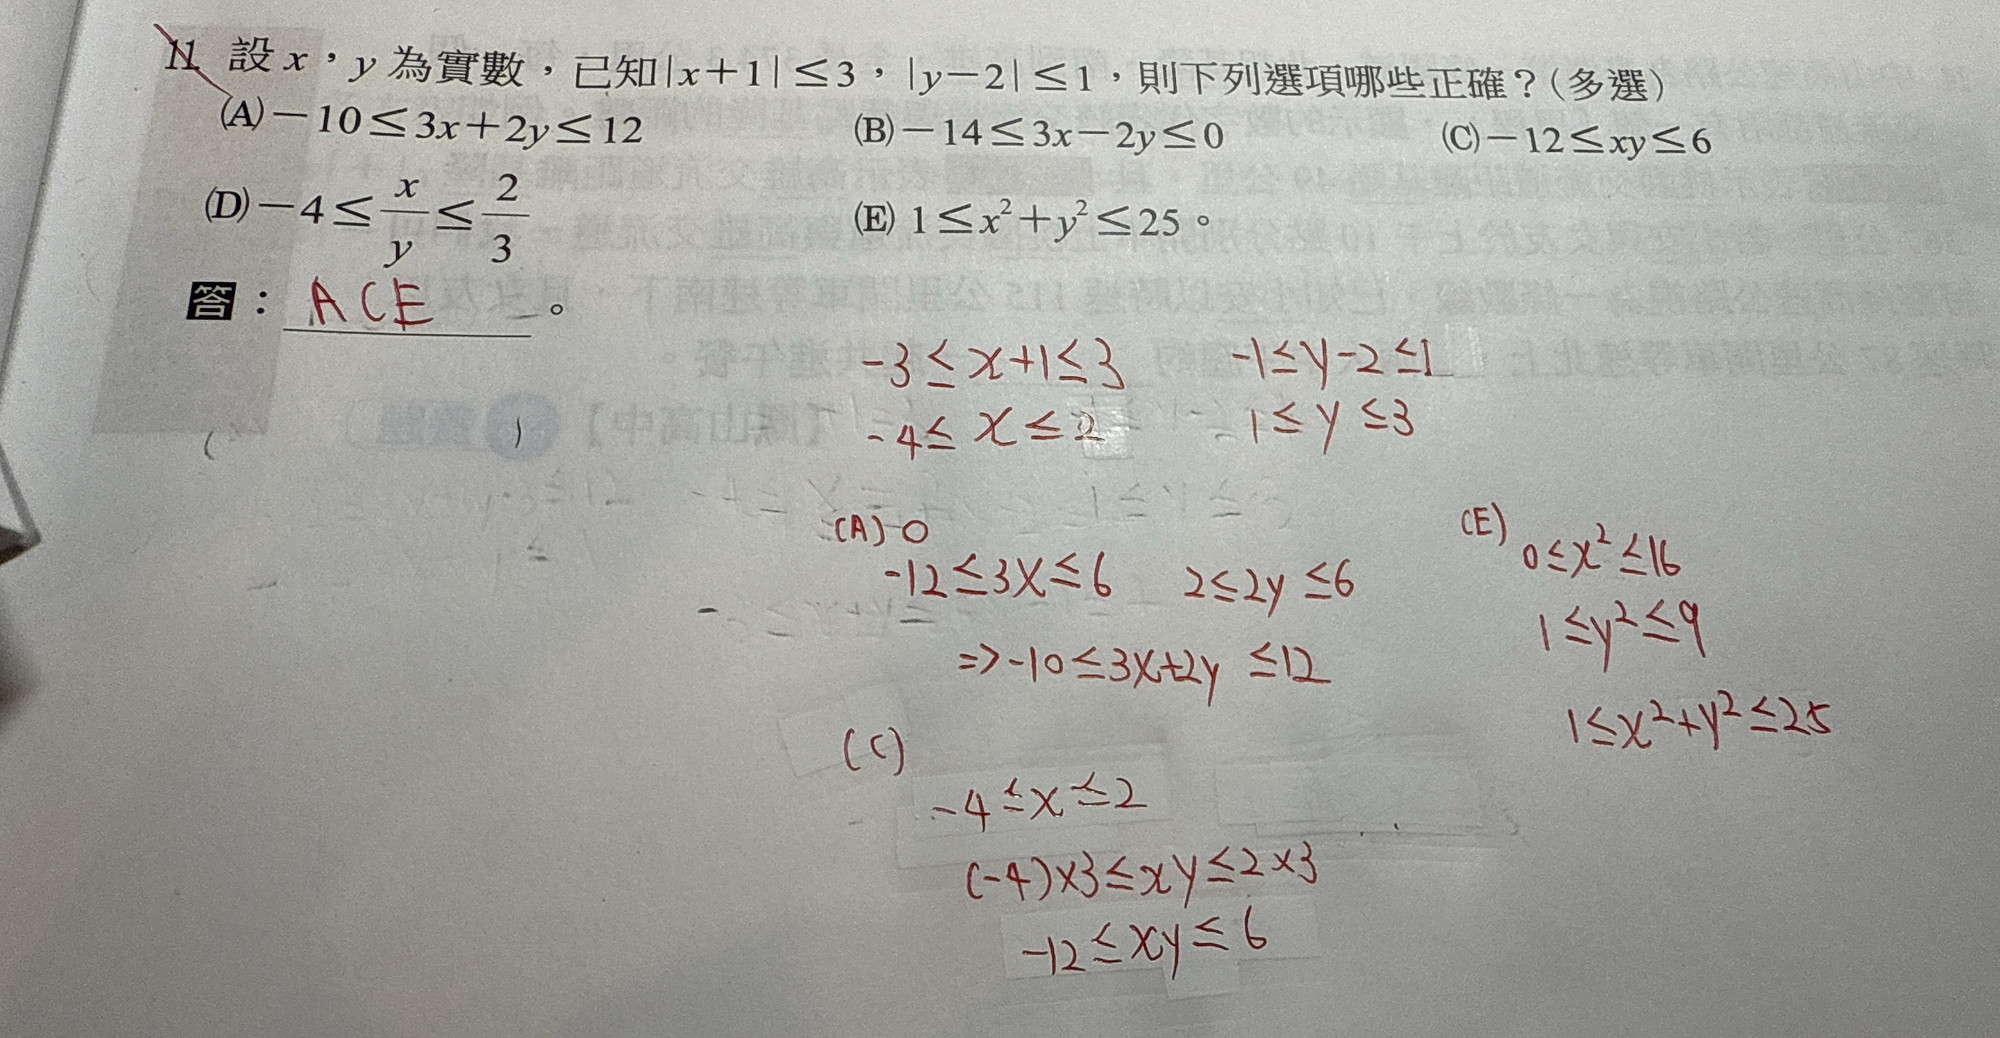 11. 設 x，y 為實數，已知|x＋1|≤3，|y－2|≤1，則下列選項哪些正確？(多選)
(A)－10≤3x＋2y≤12 (B)－14≤3x－2y≤0 (C)－12≤xy≤6
(D)－4≤x/y≤2/3 (E) 1≤x²＋y²≤25。
答：ACE。
-3≤x+1≤3 -1≤y-2≤1
-4≤x≤2 1≤y≤3
(A) 0
-12≤3x≤6 2≤2y≤6
=>-10≤3x+2y≤12
(C)
-4≤x≤2
(-4)×3≤xy≤2×3
-12≤xy≤6
(E)
0≤x²≤16
1≤y²≤9
1≤x²+y²≤25